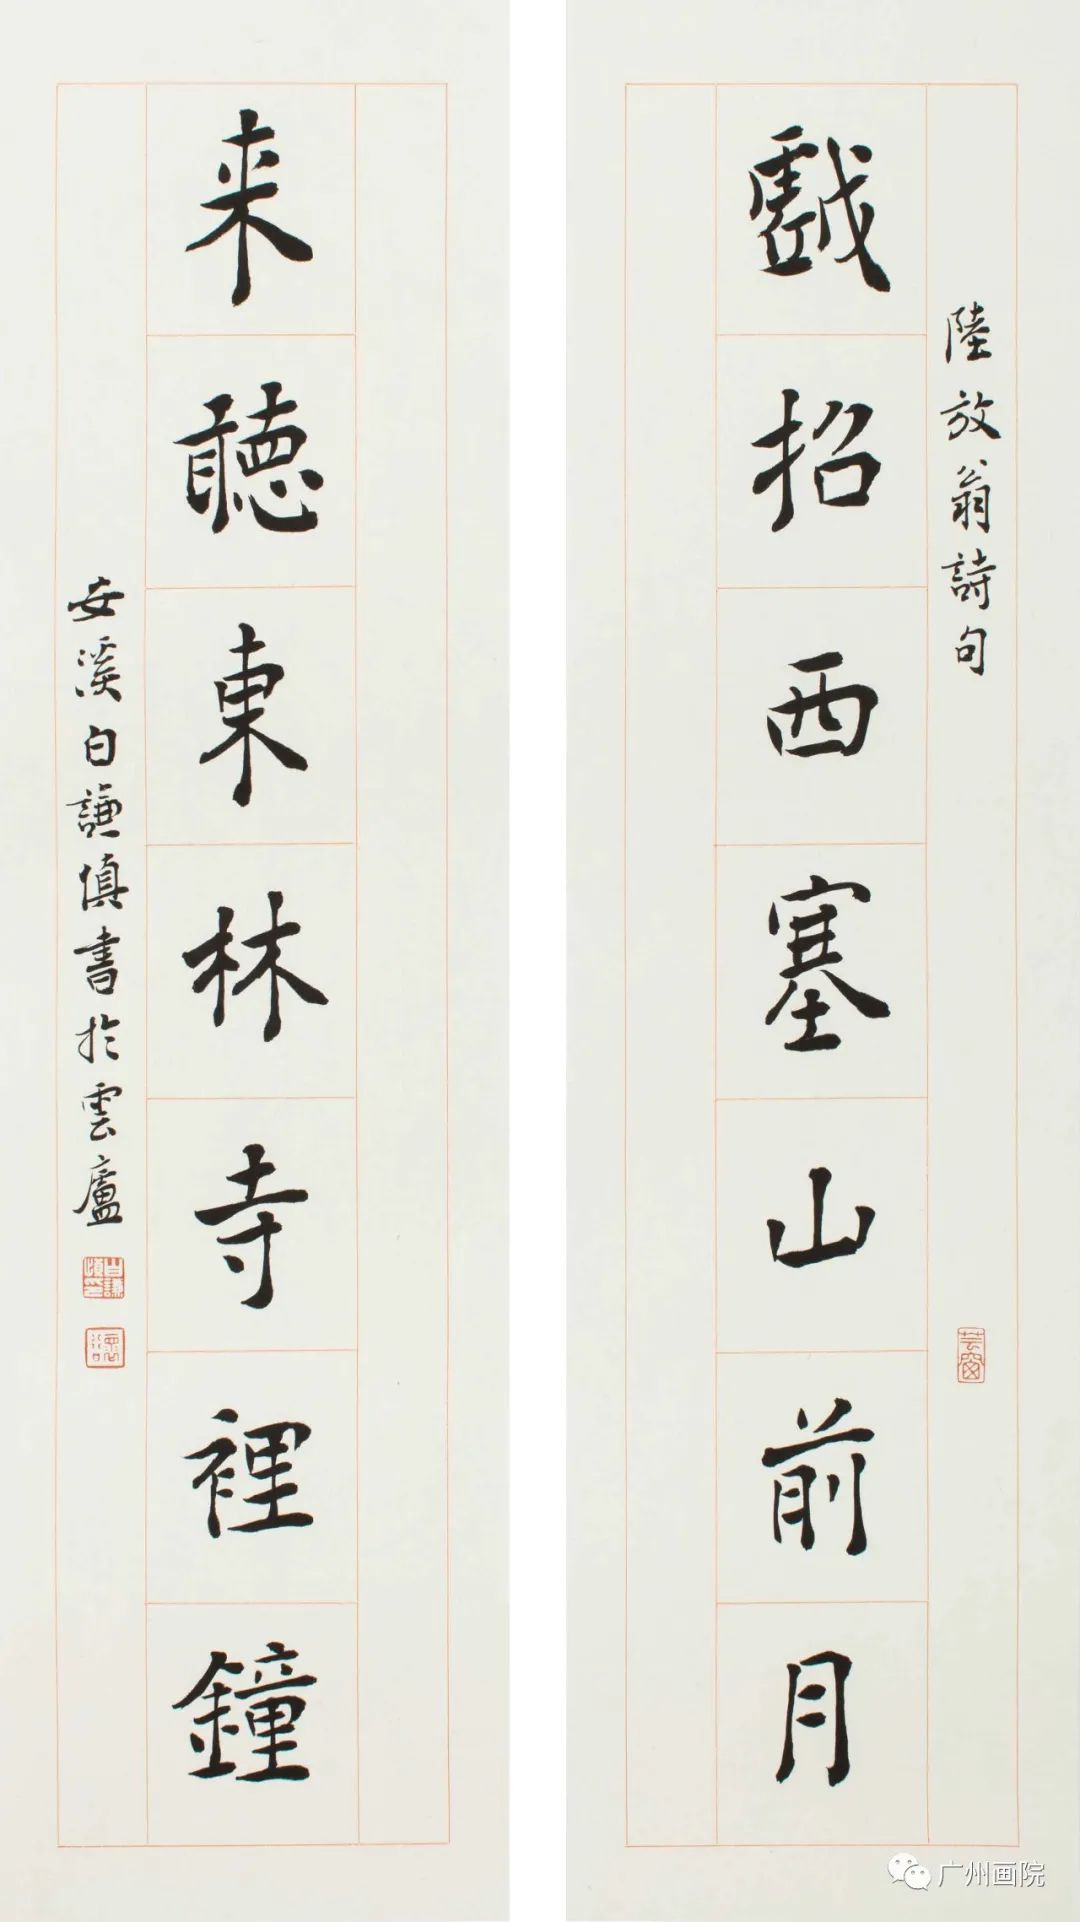 陸放翁詩句
戲招西塞山前月
来聽東林寺裡鐘
安溪白謙慎書於雲廬
芸窗
白謙慎印
广州画院